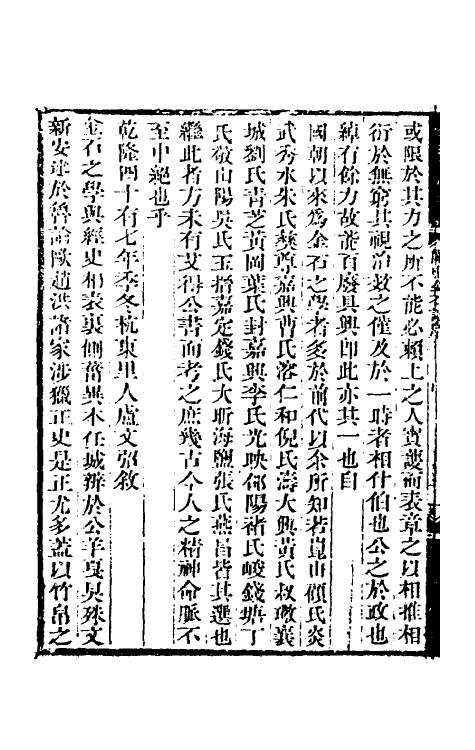 或限於其力之所不能必賴上之人寶護而表章之以相推相
衍於無窮其視治效之僅及於一時者相什伯也公之於政也
綽有餘力故能百廢具興即此亦其一也自
國朝以來為金石之學者多於前代以余所知若崑山顧氏炎
武秀水朱氏彝尊嘉興曹氏溶仁和倪氏濤大興黃氏叔璥襄
城劉氏青芝黃岡葉氏封嘉興李氏光暎郃陽褚氏峻錢塘丁
氏敬山陽吳氏玉搢嘉定錢氏大昕海鹽張氏燕昌皆其選也
繼此者方未有艾得公書而考之庶幾古今人之精神命脈不
至中絕也乎
乾隆四十有七年季冬杭東里人盧文弨敘
金石之學與經史相表裏側菑異本任城辨於公羊戛臭殊文
新安述於魯論歐趙洪諸家涉獵正史是正尤多蓋以竹帛之